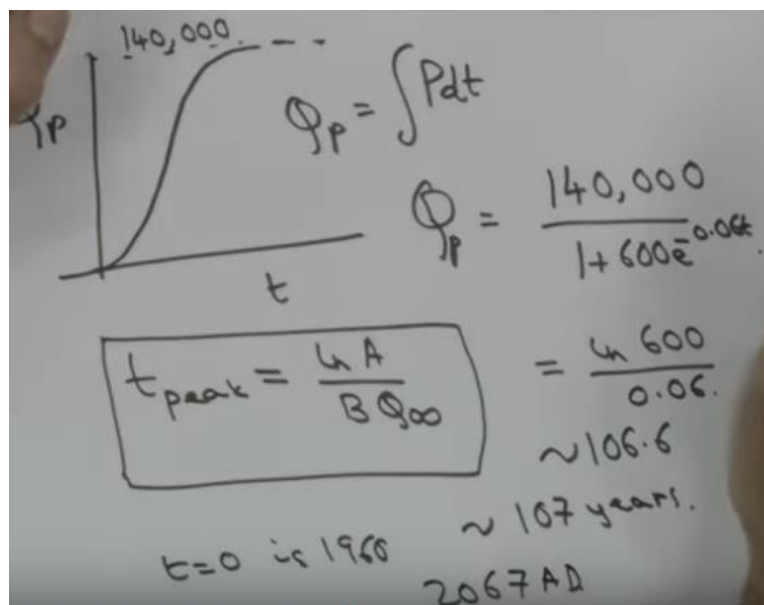 140,000
Qp
Qp = ∫Pdt
Qp = 140,000 / 1+600e^-0.06t
t
t peak = ln A / B Q∞
= ln 600 / 0.06.
~106.6
~ 107 years.
t=0 is 1960
2067 AD